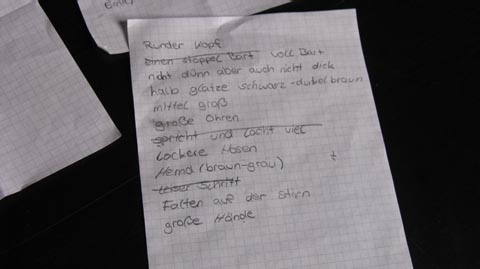 Emily
Runder Kopf
einen stoppel Bart voll Bart
nicht dünn aber auch nicht dick
halb glatze schwarz-dukelbraun
mittel groß
große Ohren
spricht und lacht viel
lockere Hosen
Hemd (braun-grau)
leiser Schritt
Falten auf der Stirn
große Hände